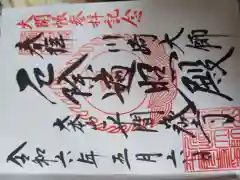 大開帳奉拝記念
奉拝 川崎大師
厄除遍照殿
大本山平間寺
令和六年五月六日